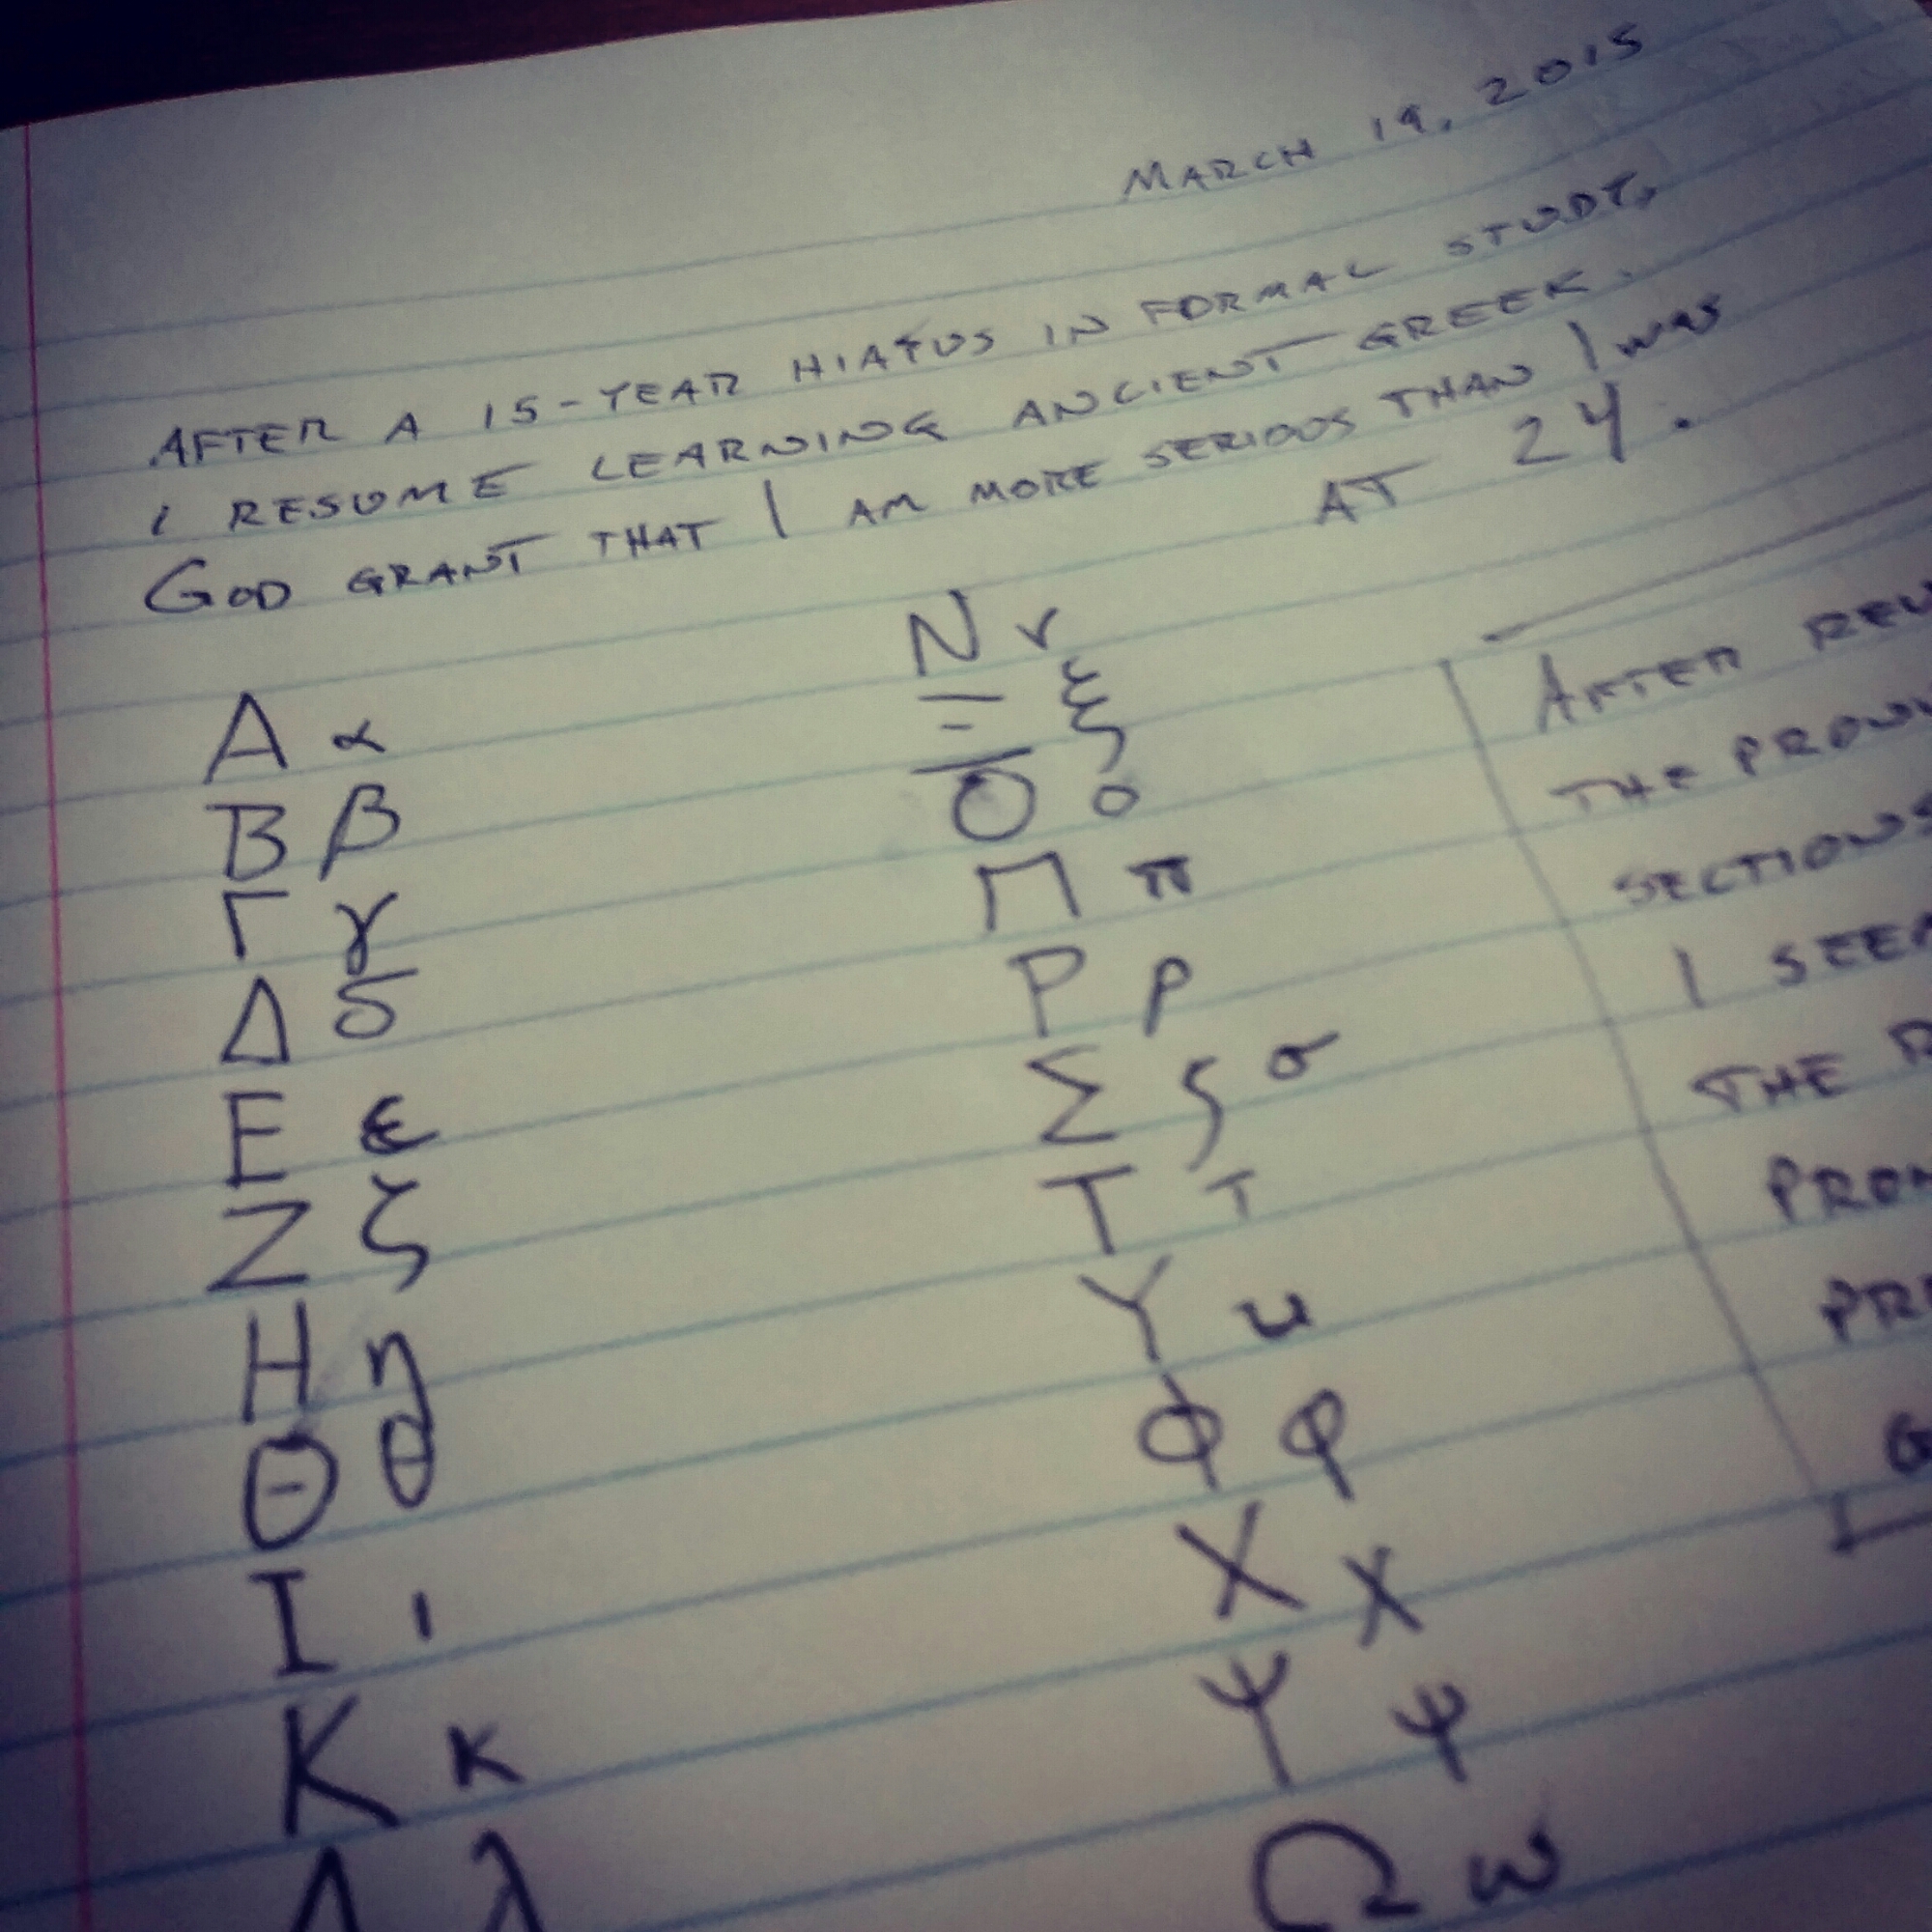 MARCH 19, 2015
AFTER A 15-YEAR HIATUS IN FORMAL STUDY,
I RESUME LEARNING ANCIENT GREEK.
GOD GRANT THAT I AM MORE SERIOUS THAN I WAS
AT 24.
Α α
Β β
Γ γ
Δ δ
Ε ε
Ζ ζ
Η η
Θ θ
Ι ι
Κ κ
Λ λ
Ν ν
Ξ ξ
Ο ο
Π π
Ρ ρ
Σ ς σ
Τ τ
Υ υ
Φ φ
Χ χ
Ψ ψ
Ω ω
AFTER
THE
SECTIONS
I
THE